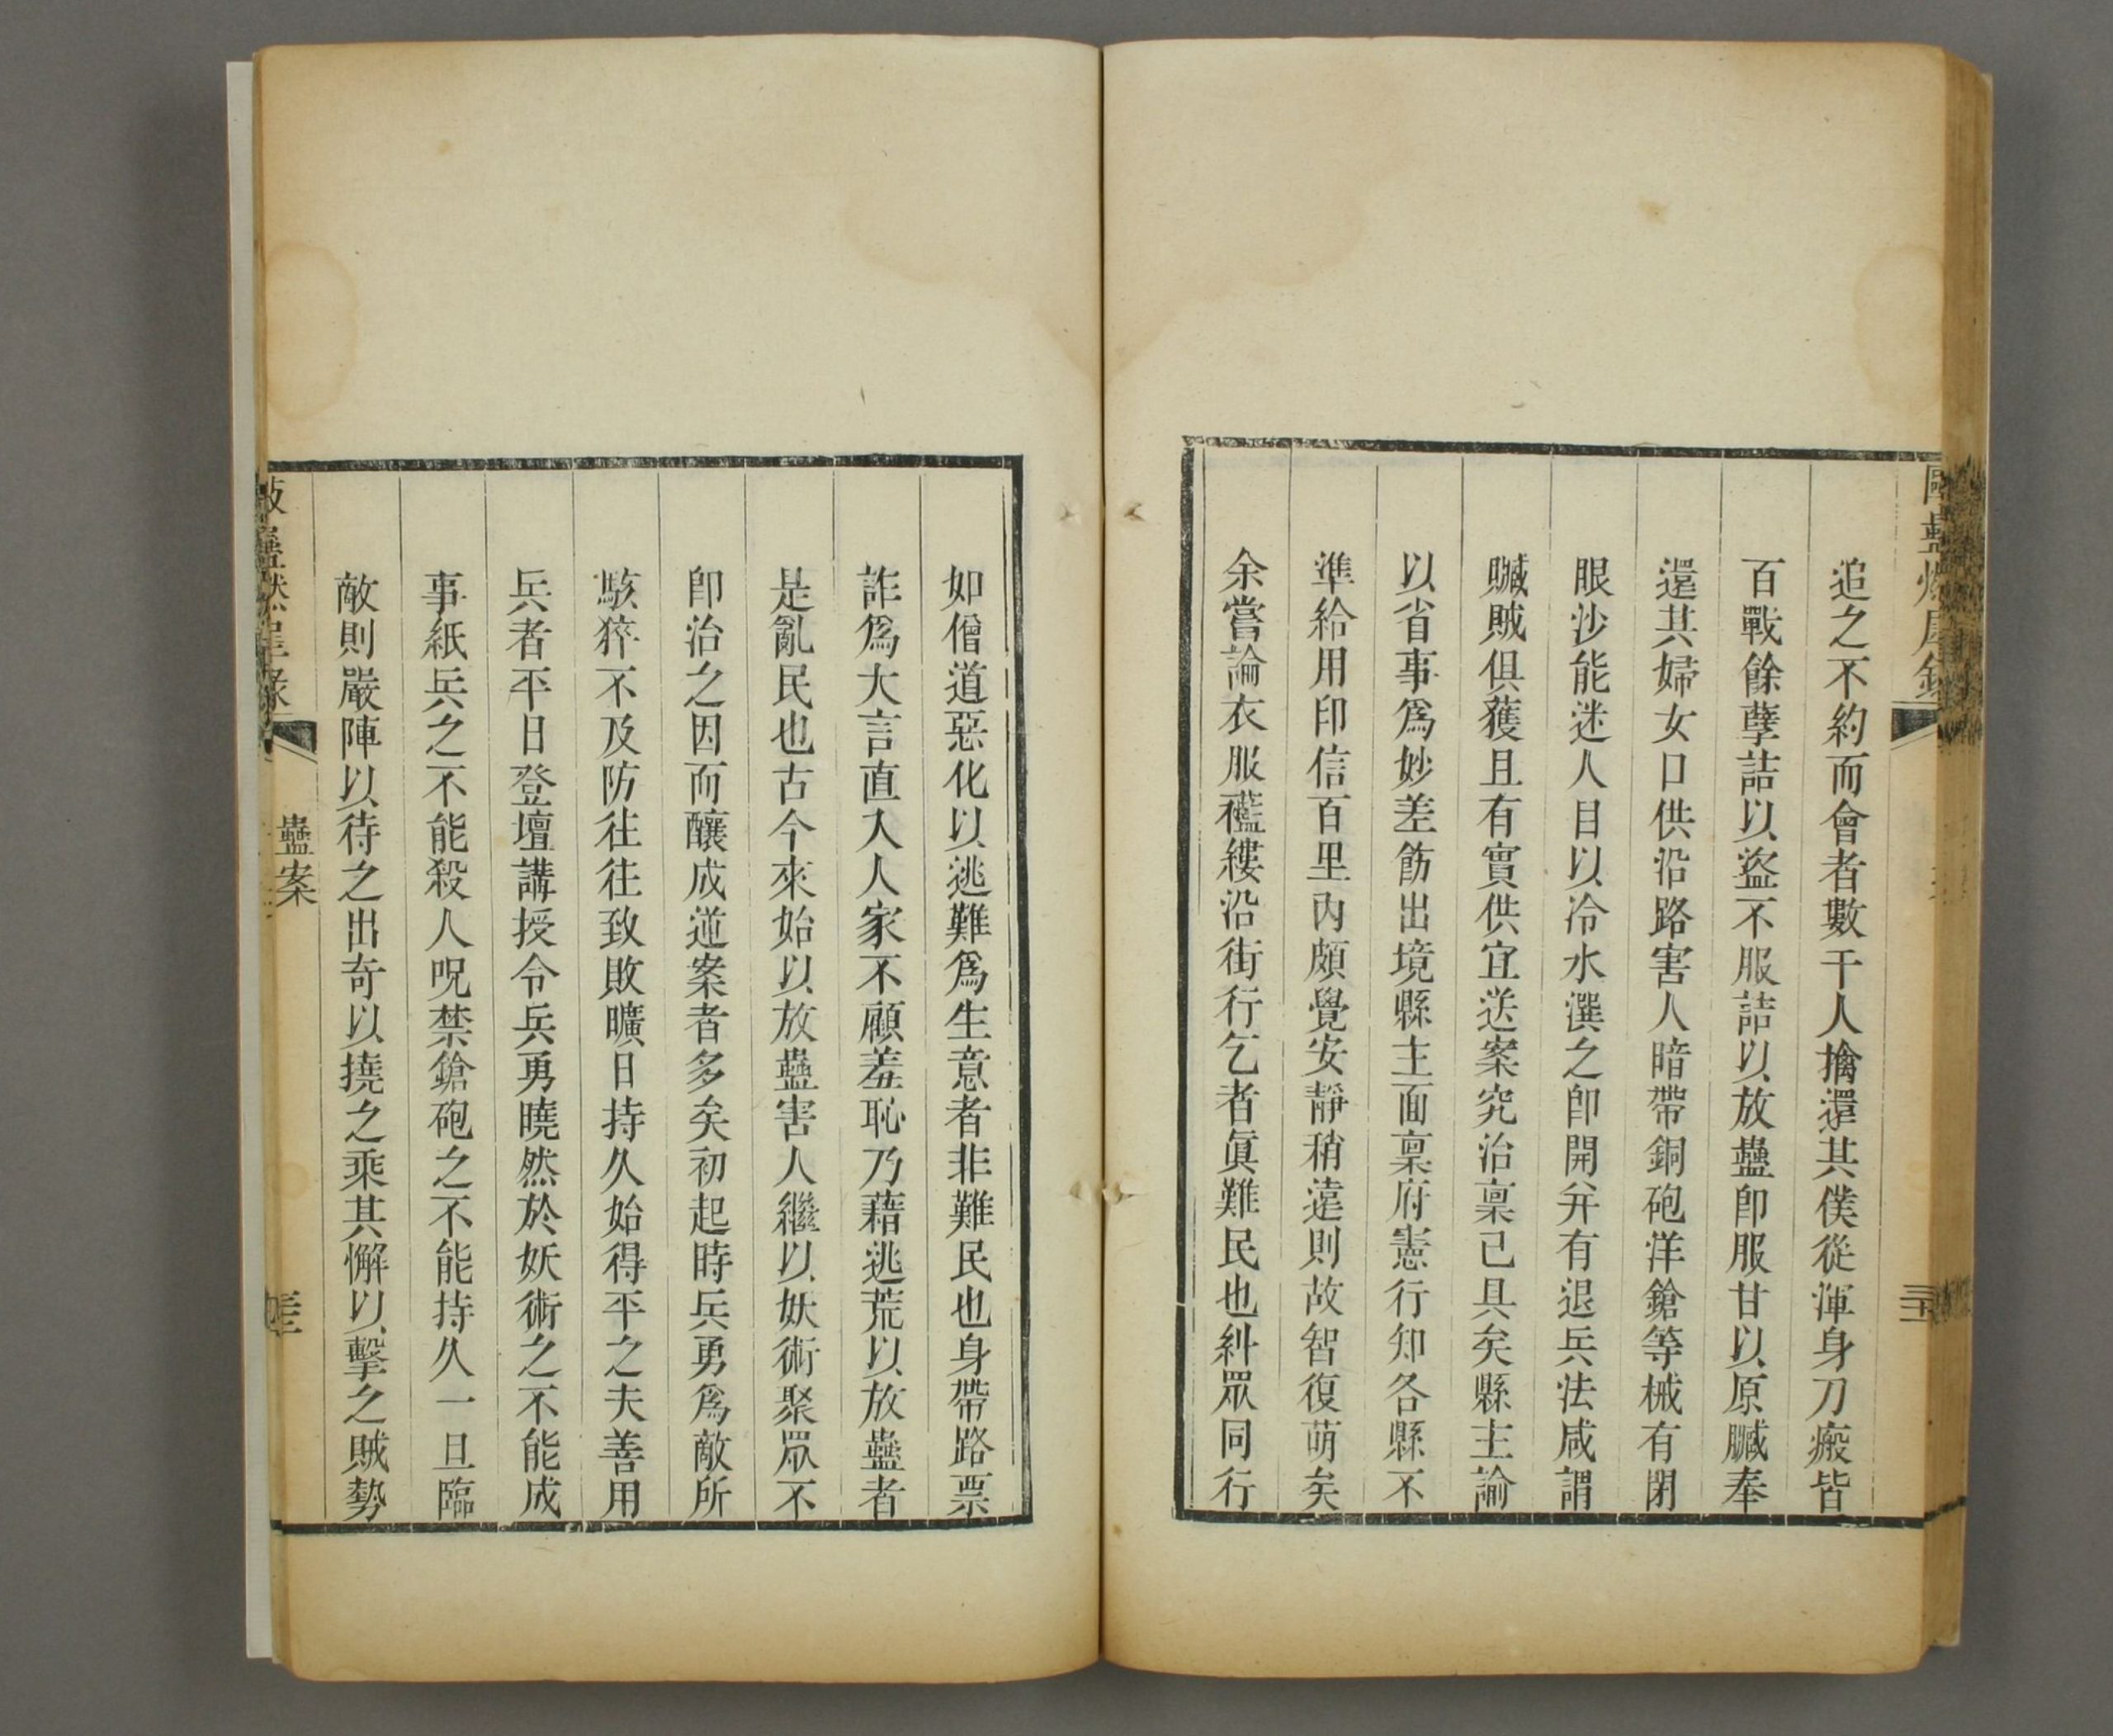 追之不約而會者數千人擒還其僕從渾身刀瘢皆
百戰餘孽詰以盜不服詰以放蠱卽服甘以原贓奉
還其婦女口供沿路害人暗帶銅砲洋鎗等械有閉
眼沙能迷人目以冷水潠之卽開并有退兵法咸謂
贓賊俱獲且有實供宜送案究治禀已具矣縣主諭
以省事爲妙差飭出境縣主面禀府憲行知各縣不
準給用印信百里內頗覺安靜稍遠則故智復萌矣
余嘗論衣服襤縷沿街行乞者眞難民也糾眾同行
如僧道惡化以逃難爲生意者非難民也身帶路票
詐爲大言直入人家不顧羞恥乃藉逃荒以放蠱者
是亂民也古今來始以放蠱害人繼以妖術聚眾不
卽治之因而釀成逆案者多矣初起時兵勇爲敵所
駭猝不及防往往致敗曠日持久始得平之夫善用
兵者平日登壇講授令兵勇曉然於妖術之不能成
事紙兵之不能殺人呪禁鎗砲之不能持久一旦臨
敵則嚴陣以待之出奇以撓之乘其懈以擊之賊勢
蠱案